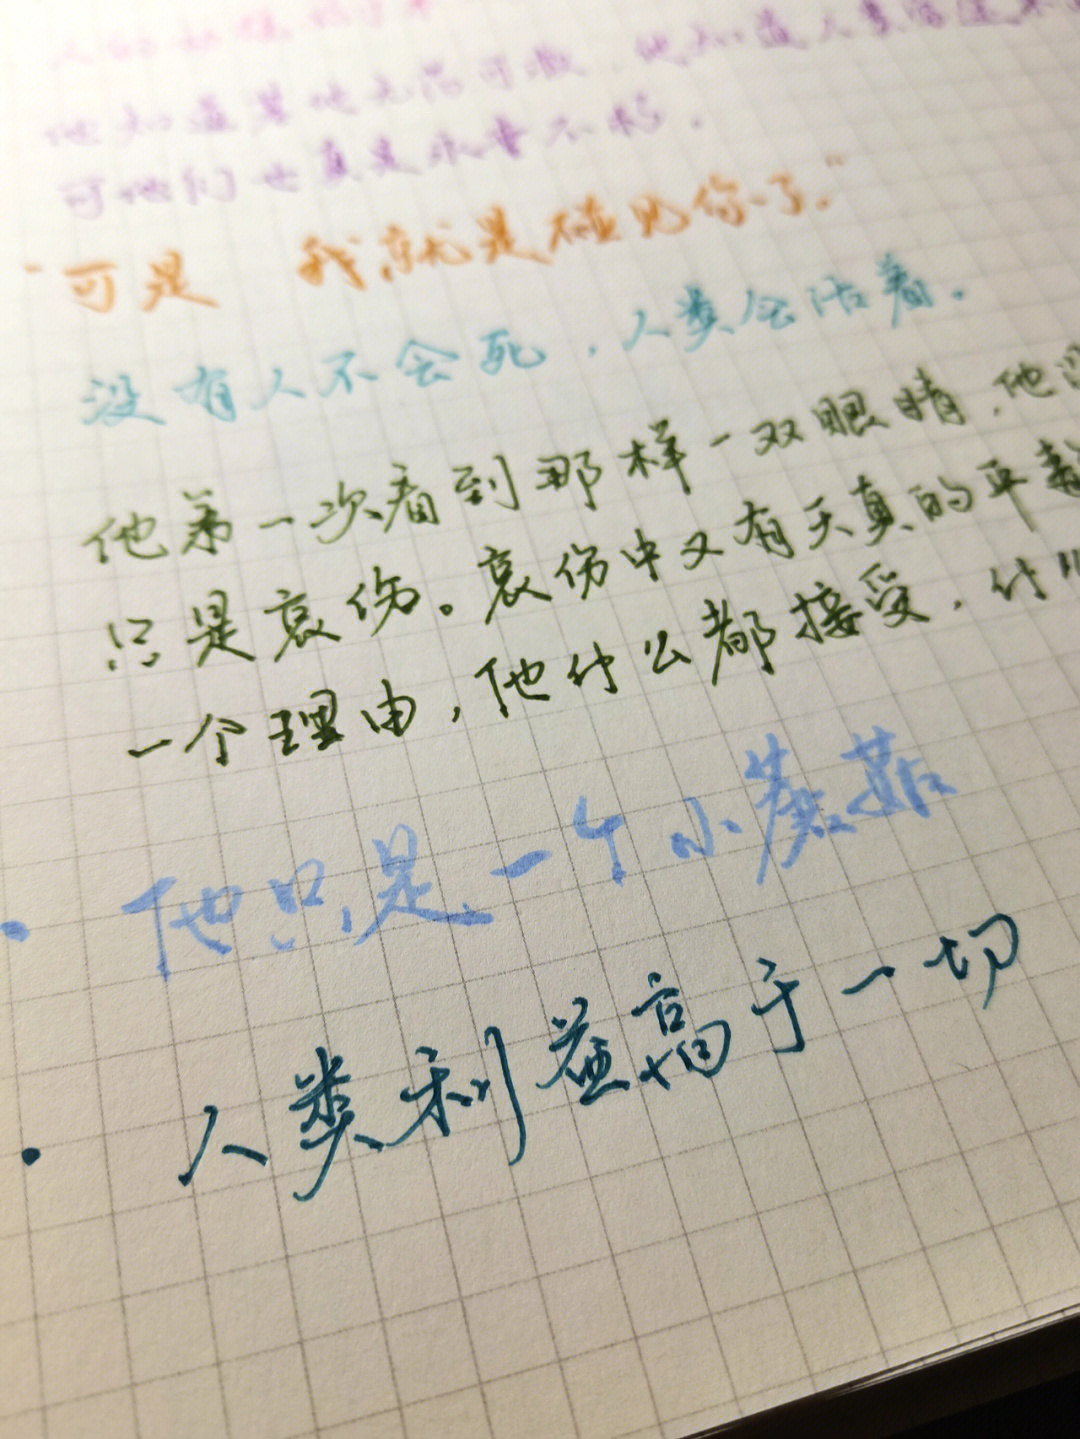 他知道其他无药可救，他知道人类
可他们也真是永垂不朽。
“可是 我就是碰见你了。”
没有人不会死，人类会活着。
他第一次看到那样一双眼睛，他
只是哀伤。哀伤中又有天真的平静
一个理由，他什么都接受，什
· 他只是一个小蘑菇
· 人类利益高于一切